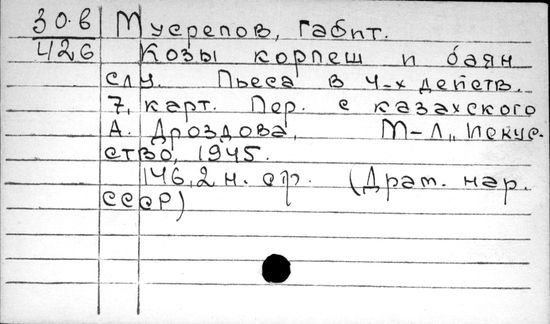 30.в Мусрепов, Габит.
426 Козы корпеш и баян
слу. Пьеса в 4-х действ.
7, карт. Пер. с казахского
А. Дроздова, М-Л., Искус-
ство, 1945.
146, 2 н. стр. (Драт. нар.
СССР)